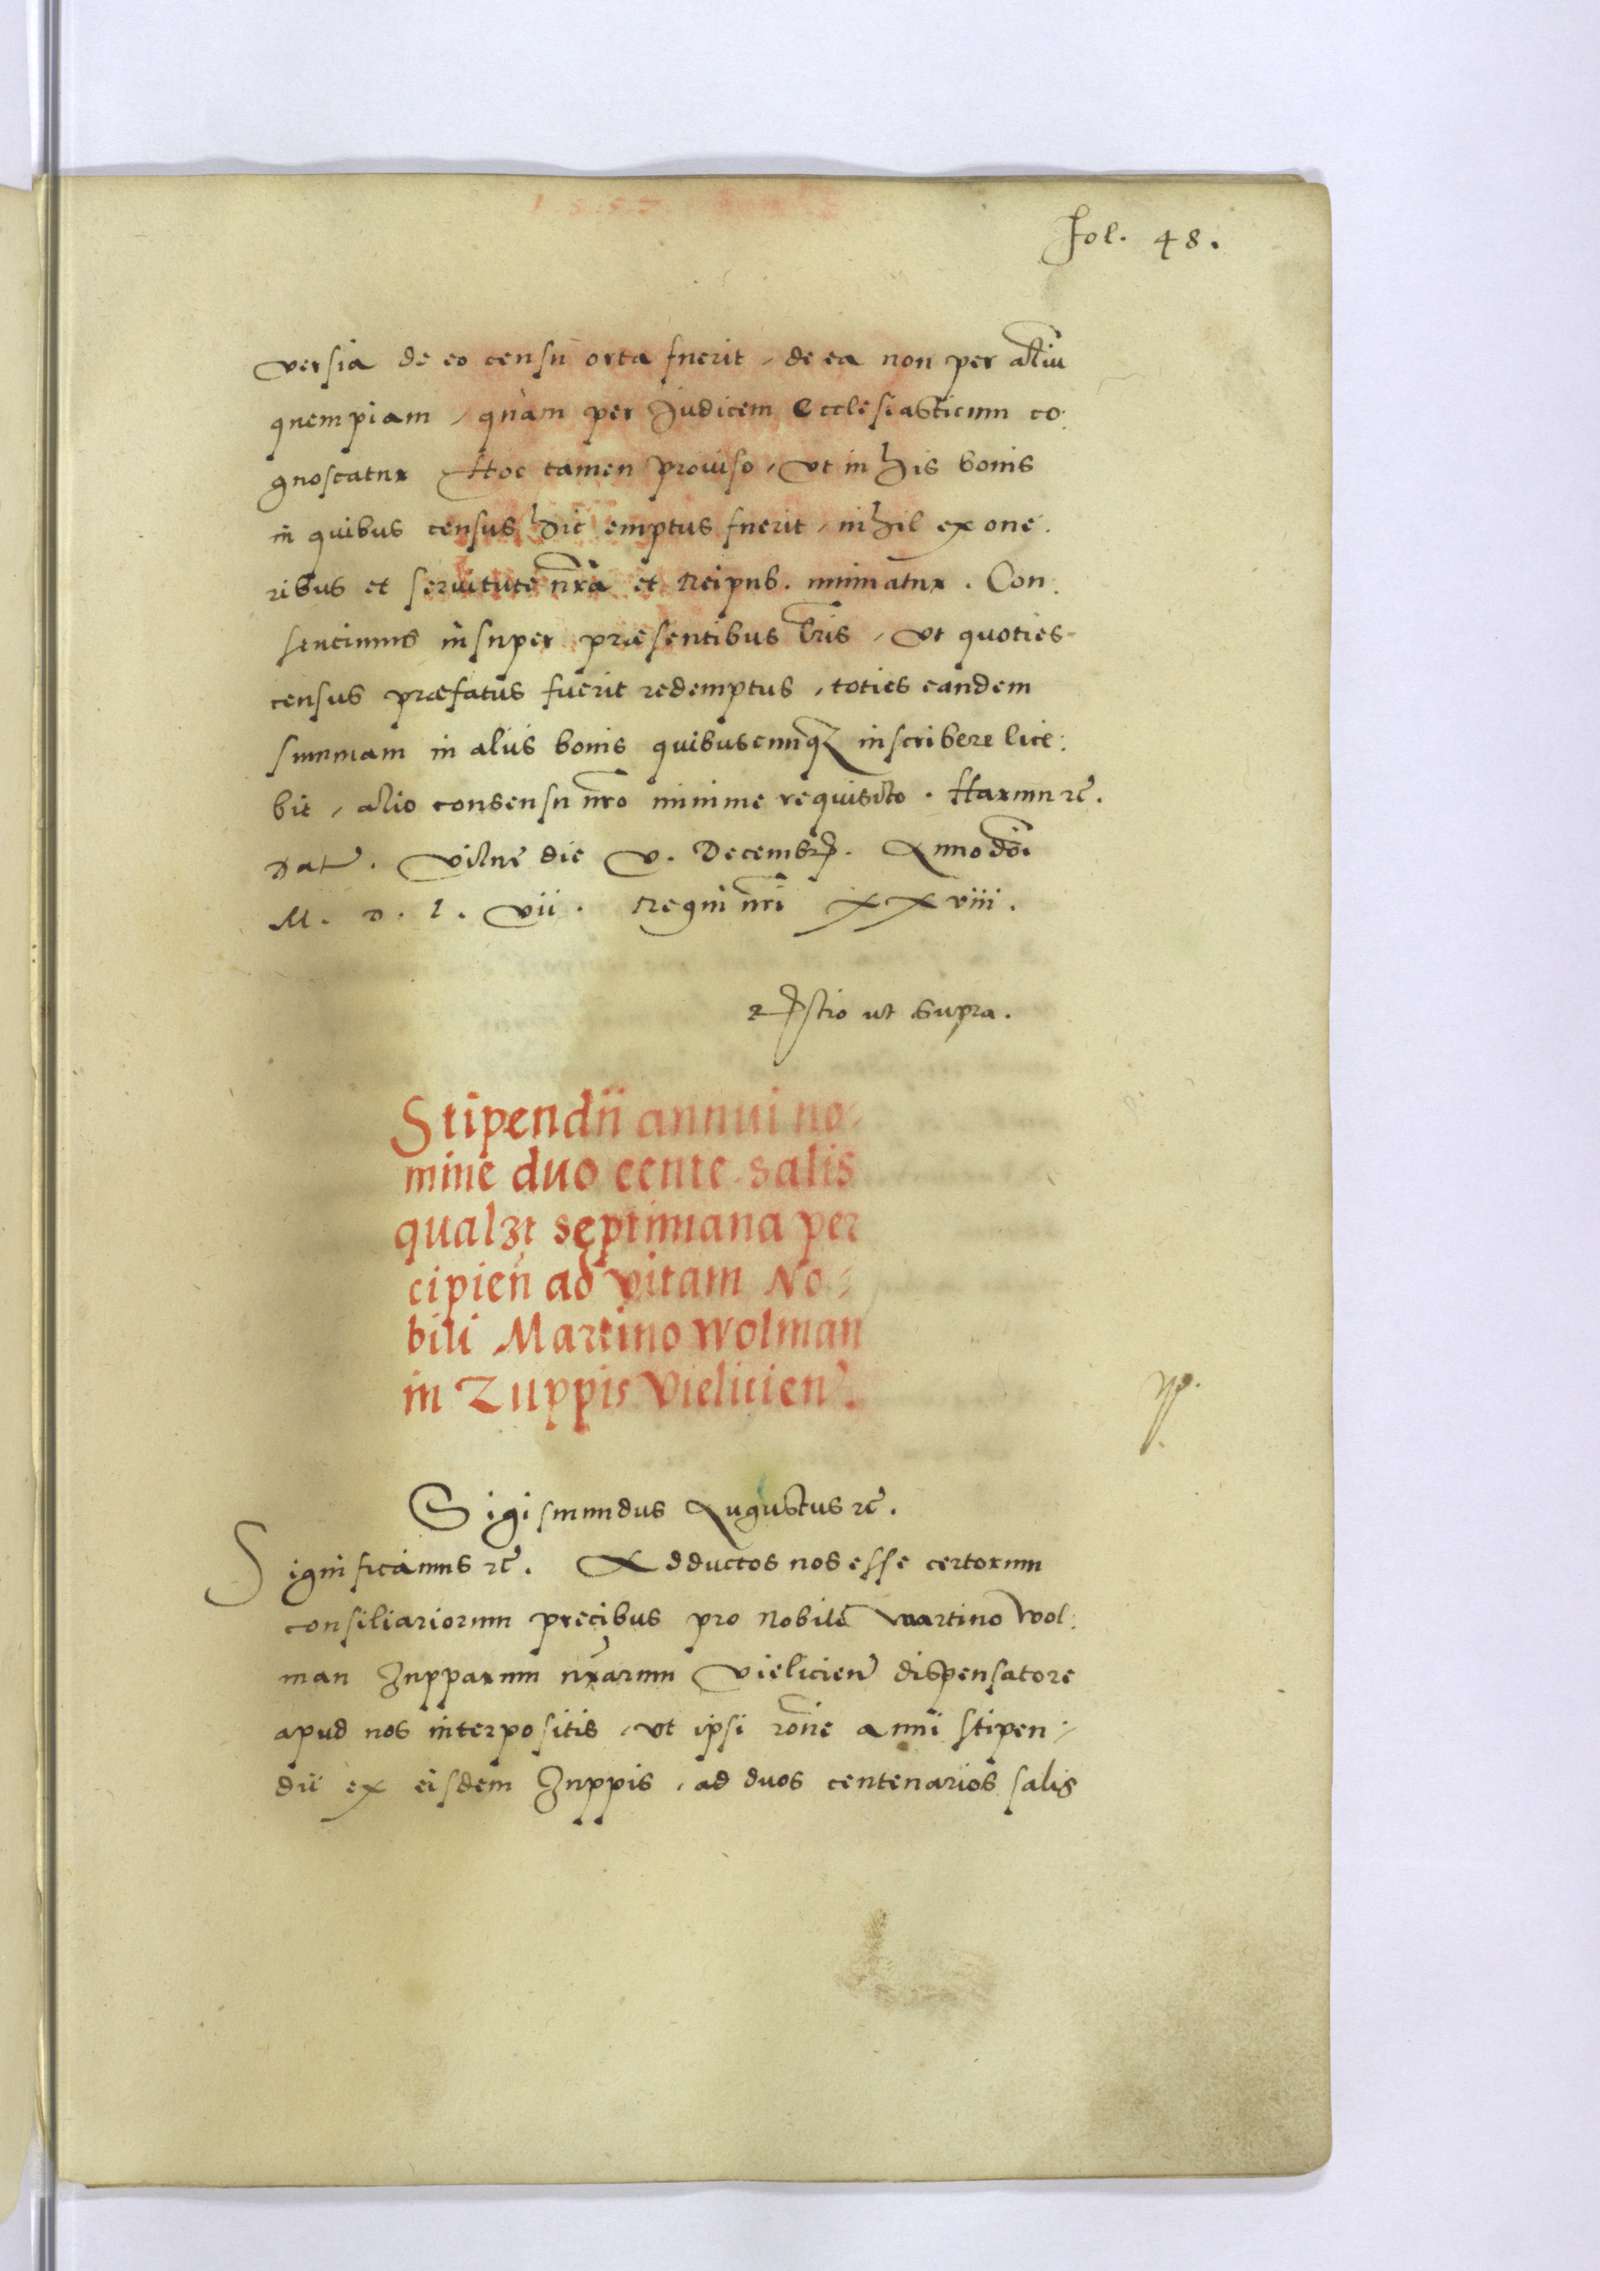 fol. 48.
versia de eo censu orta fuerit, de ea non per aliũ
quempiam, quàm per Judicem Ecclesiasticum co:
gnoscatur Hoc tamen proviso, vt in his bonis
in quibus census hic emptus fuerit, nihil ex one:
ribus et servitute nr̃a et Reipub. minuatur. Con:
sentimus insuper præsentibus lr̃is, vt quoties
census præfatus fuerit redemptus, toties eandem
summam in alijs bonis quibuscunqꝫ inscribere lice:
bit, alio consensu nr̃o minime requisito. Harum ꝛc̃.
Dat̃. Vilnę die V. Decembr̃. Anno dñi
M. D. L. vii. Regni nr̃i XXviii.
Rl̃atio ut supra.
Stipendii annui no:
mine duo cente. salis
qualꝫt septimana per
cipien̄ ad vitam No:
bili Martino Wolman
in Zuppis Vielicien̄.
Sigismundus Augustus ꝛc̃.
Significamus ꝛc̃. Adductos nos esse certorum
consiliariorum precibus pro Nobile Martino Wol:
man Zupparum nr̃arum Vielicien̄ dispensatore
apud nos interpositis, vt ipsi rõne annui stipen:
dii ex eisdem Zuppis, ad duos centenarios salis